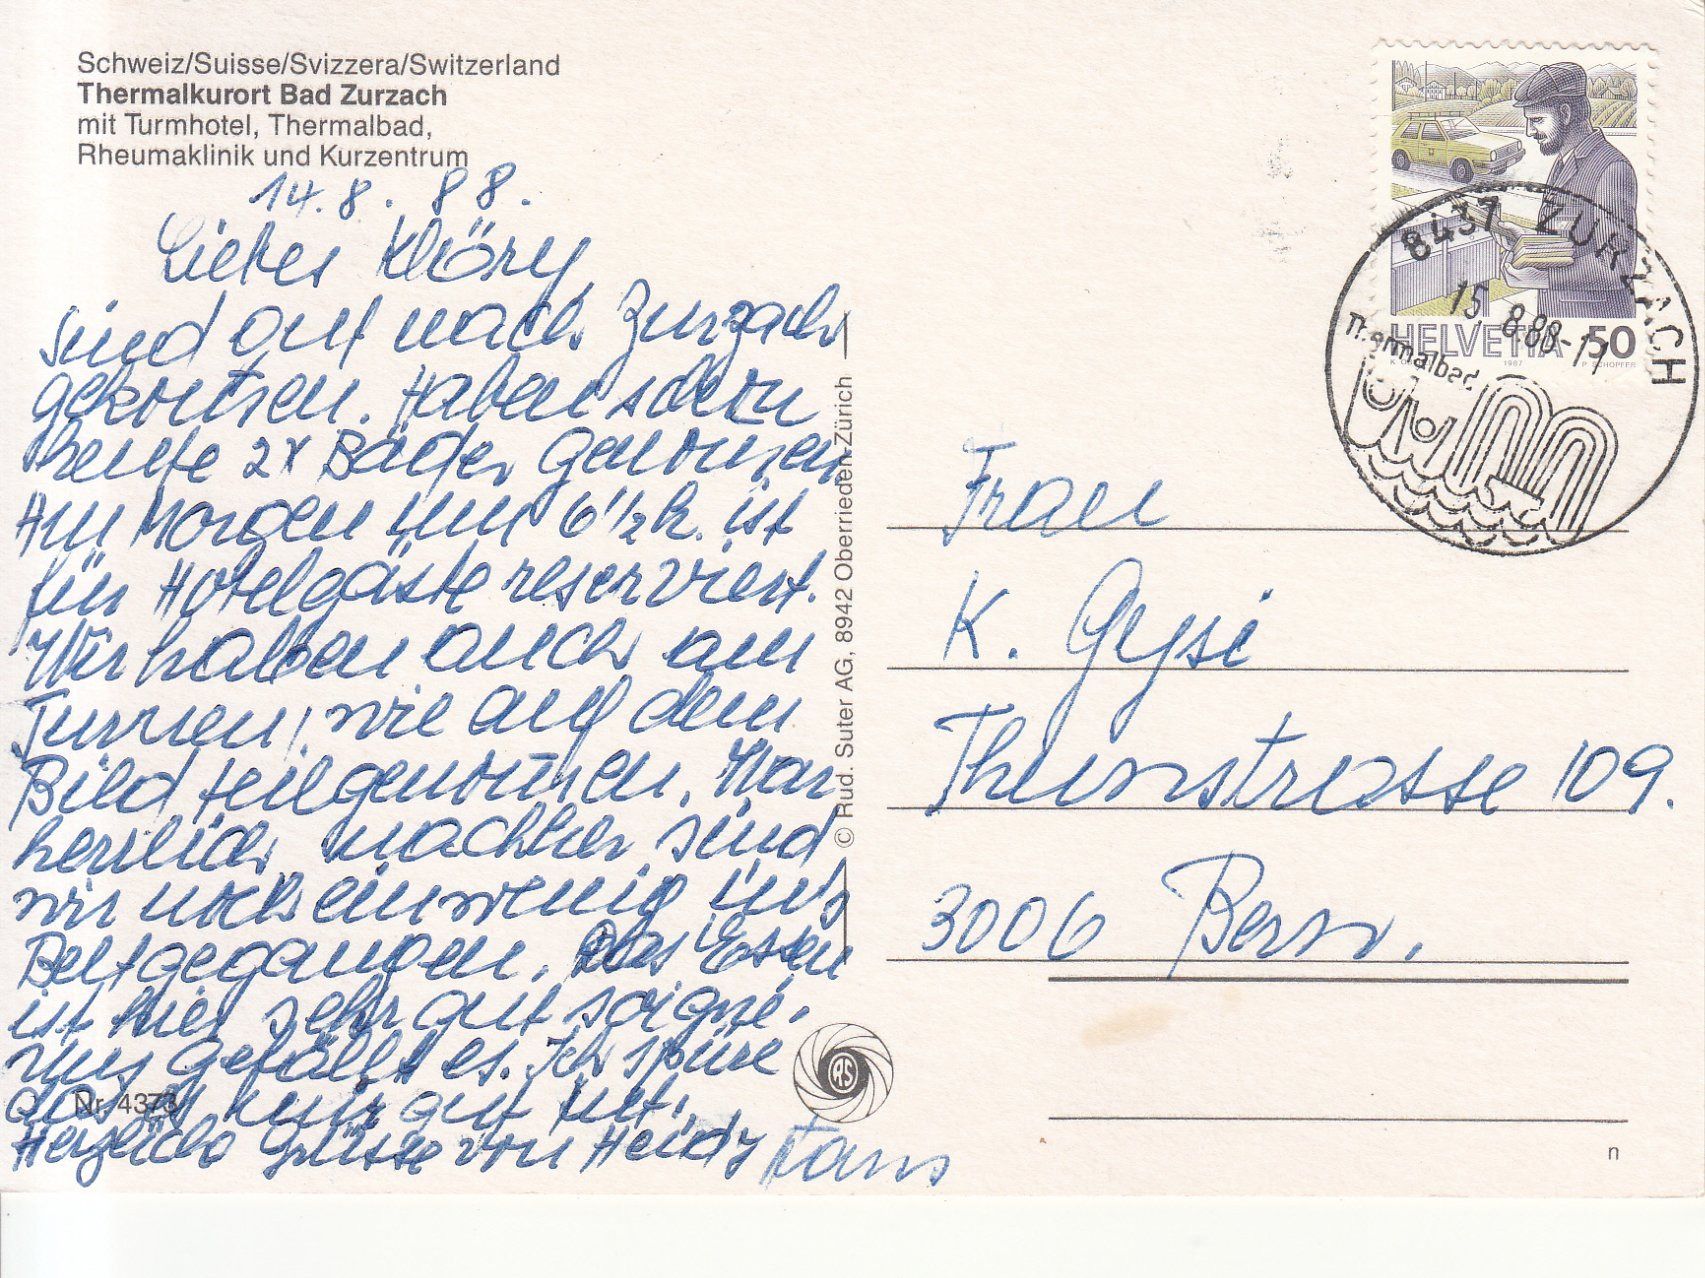 Schweiz/Suisse/Svizzera/Switzerland
Thermalkurort Bad Zurzach
mit Turmhotel, Thermalbad,
Rheumaklinik und Kurzentrum
14.8.88.
Liebes Klöry,
sind gut nach Zurzach
gekomen. Haben schon
heute 2x Bäder genomen
Am Morgen um 6½h. ist
für Hotelgäste reserviert.
Wir haben auch am
Turnen, wie auf dem
Bild teilgenomen. War
herrlich nachher sind
wir noch ein wenig ins
Bett gegangen. Das Essen
ist hier sehr gut soigné.
uns gefällt es. Ich spüre
das Kur gut tut.
Herzliche Grüsse von Heidy Hans
Nr. 4373
© Rud. Suter AG, 8942 Oberrieden-Zürich
RS
HELVETIA 50
1987
P. SCHOPFER
8437 ZURZACH
15.8.88-11
Thermalbad
Frau
K. Gysi
Thunstrasse 109.
3006 Bern.
n